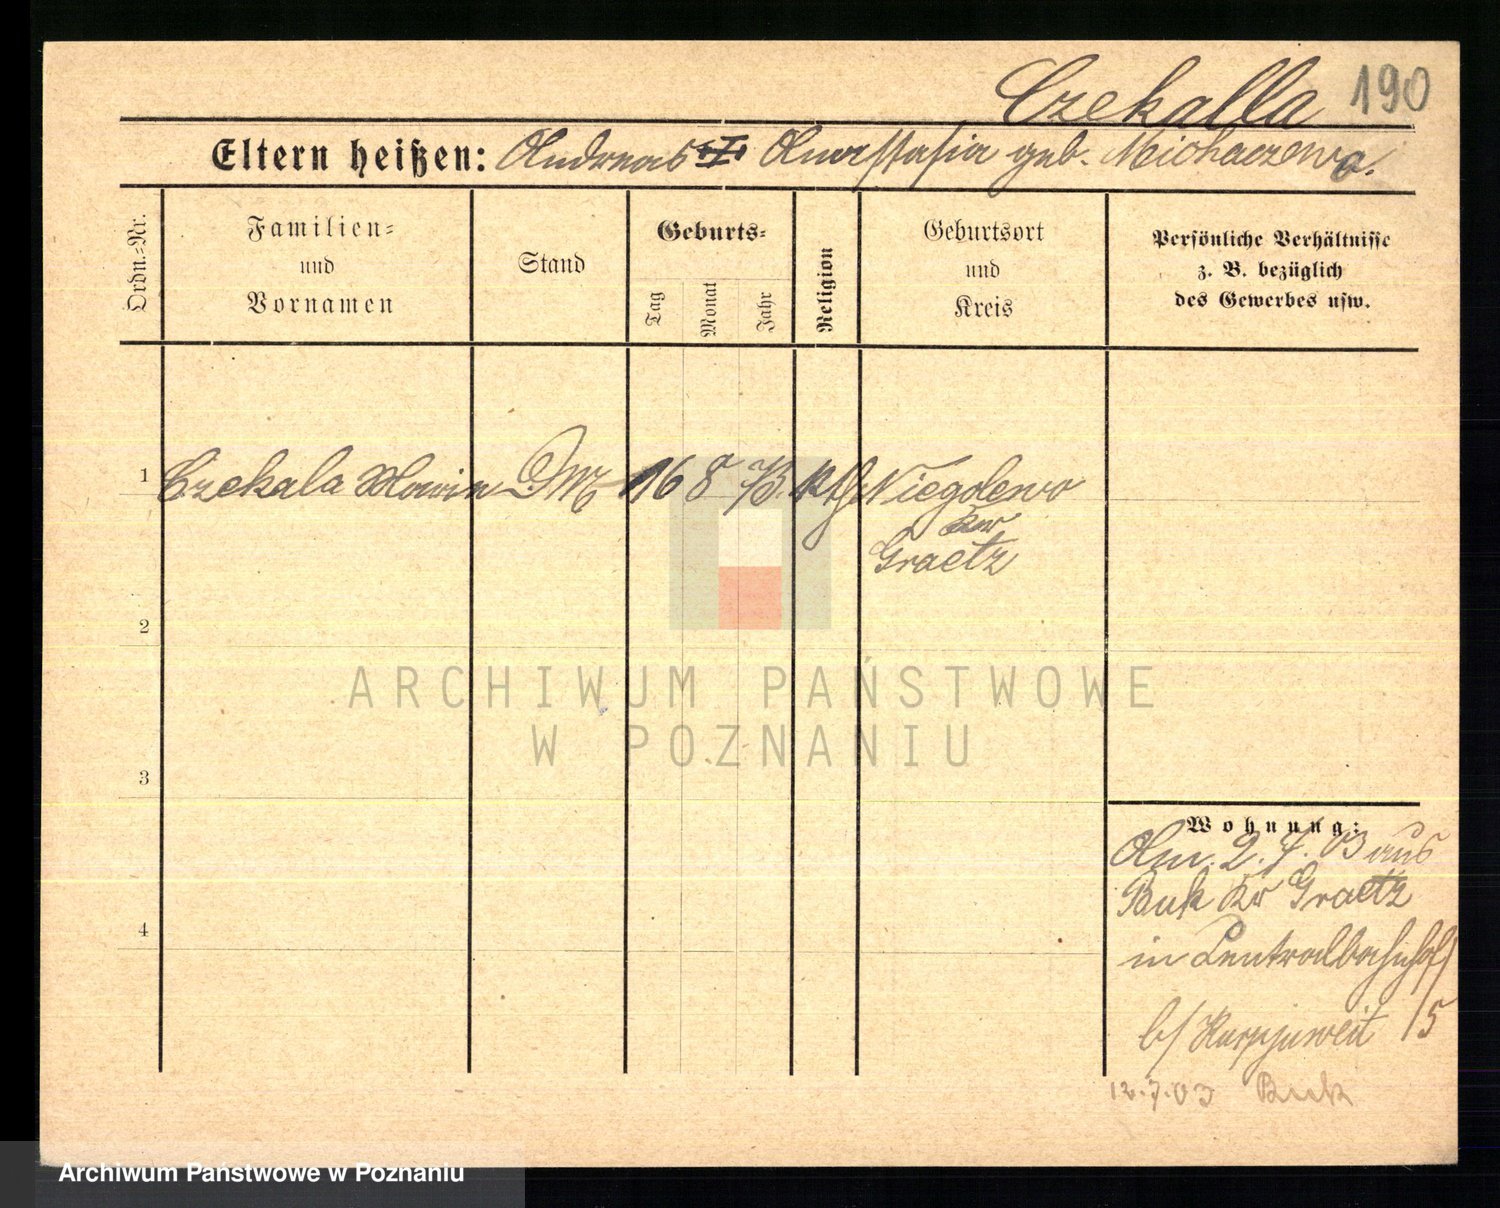 Czekalla 190
Eltern heißen: Andreas u Anastasia geb. Michaczewo.
Ordn.=Nr.
Familien=
und
Vornamen
Stand
Geburts=
Tag
Monat
Jahr
Religion
Geburtsort
und
Kreis
Persönliche Verhältnisse
z. B. bezüglich
des Gewerbes usw.
1 Czekala 16 8 73. kth Niegolewo
Kr
Graetz
2
3
4
Wohnung:
Am. 2.7.03 aus
Buk Kr Graetz
in Centralbahnhof
b/ Karpjuweit 15
12.7.03 Buk
ARCHIWUM PAŃSTWOWE
W POZNANIU
Archiwum Państwowe w Poznaniu